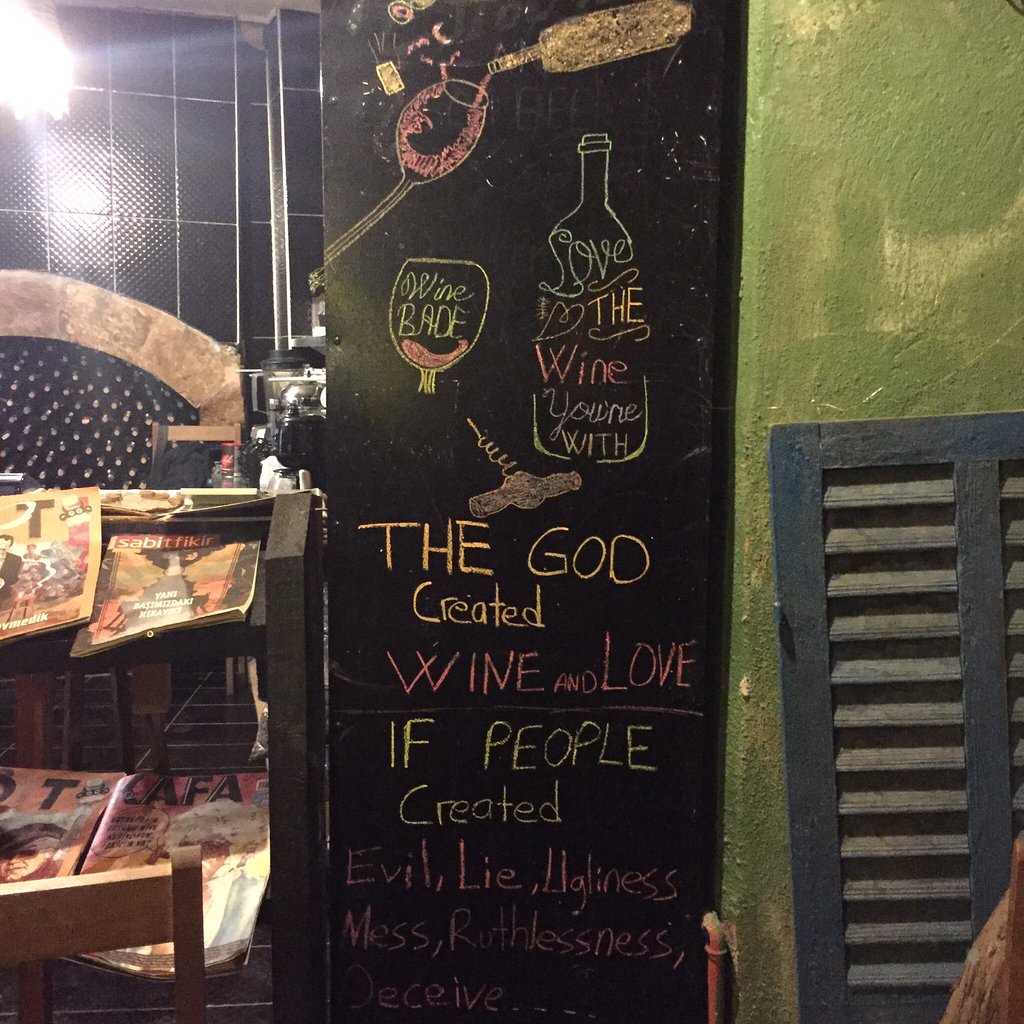 Love
THE
Wine
BADE
Wine
You're
WITH
THE GOD
Created
WINE AND LOVE
IF PEOPLE
Created
Evil, Lie, Ugliness
Mess, Ruthlessness,
Deceive....
sabitfikir
YANI
BAŞIMIZDAKİ
HİKAYECİ
OT
KAFA